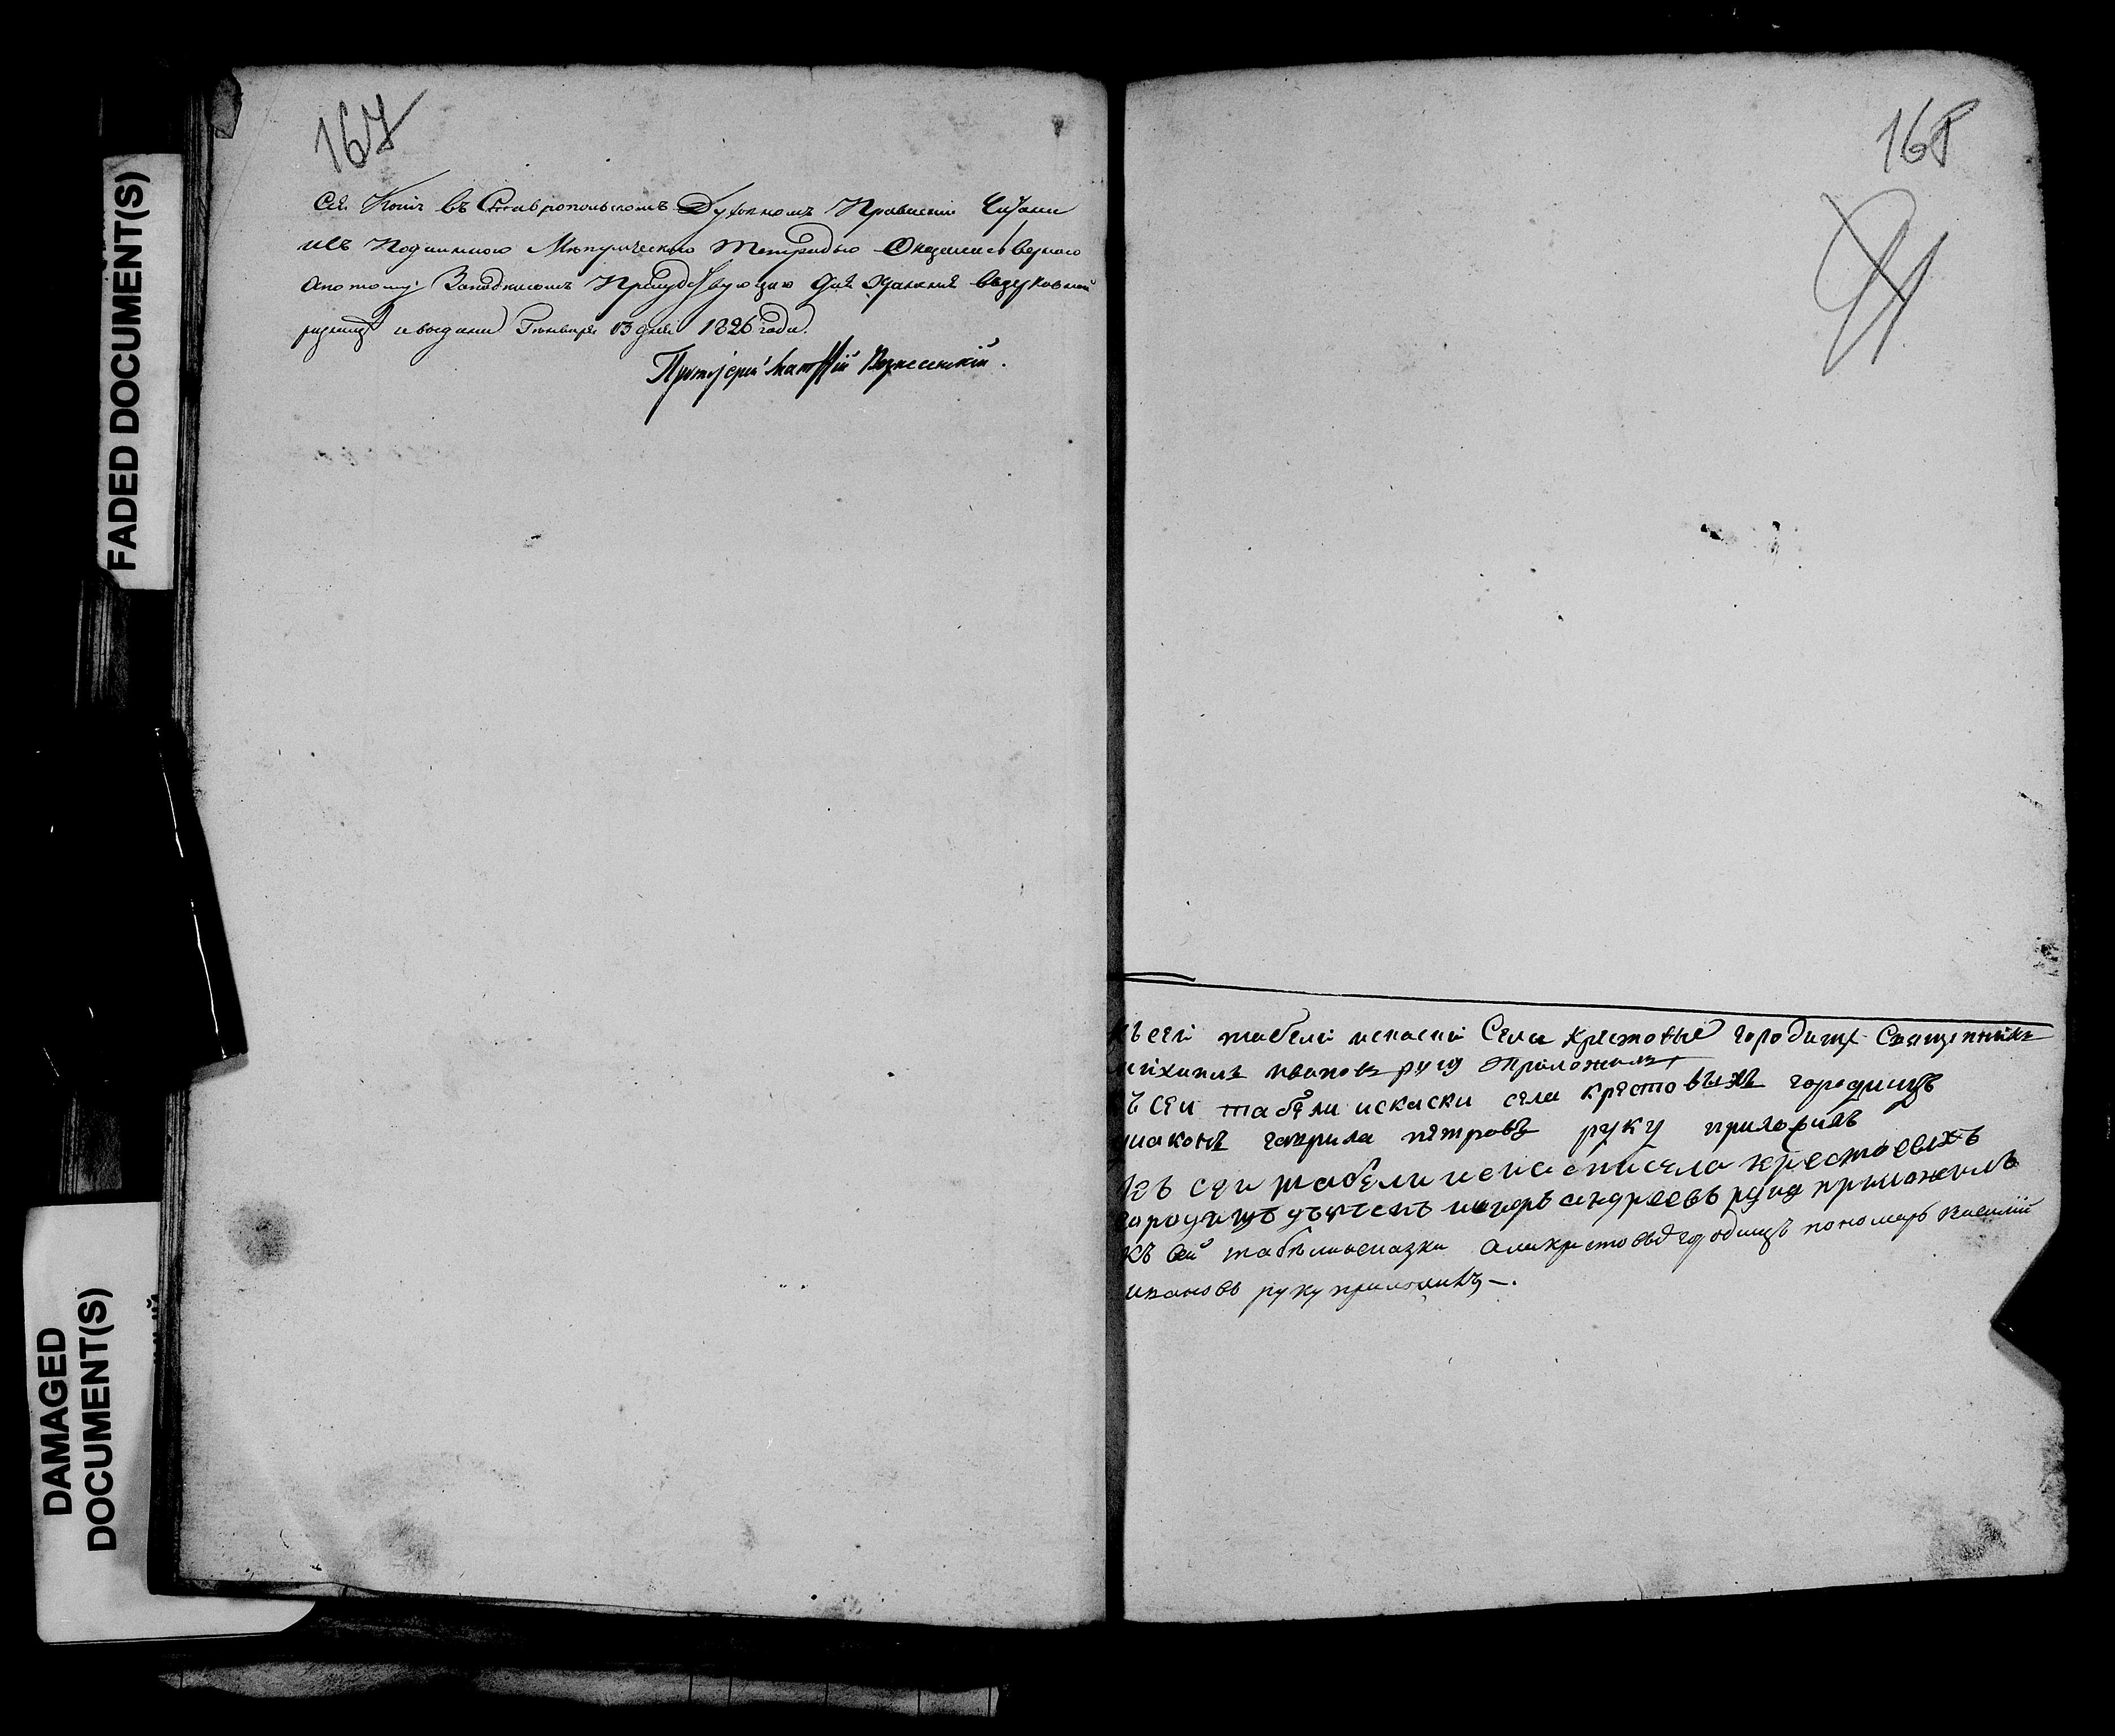 FADED DOCUMENT(S)
DAMAGED
DOCUMENT(S)
167
Сія Копія въ Ставропольскомъ Духовномъ Правленіи Читана
и съ Подлинною Метрическою Тетрадью Оказалась верною
а потому Заподписомъ Присудствующаго для Храненія въ церковной
ризнице и выдана Генваря 13 дня 1826 года.
Протоіерей Матθій Вознесенскій.
168
къ сей табели искаски Села крестовые городищи Священникъ
михаилъ ивановъ руку приложилъ
къ сеи табели искаски села крестовыхъ городищъ
диаконъ гаврила петровъ руку приложилъ
къ сеи табели села крестовыхъ
городищъ дьячекъ андреевъ руку приложилъ
къ сей табели исказки городищъ пономарь василий
ивановъ руку приложилъ —.